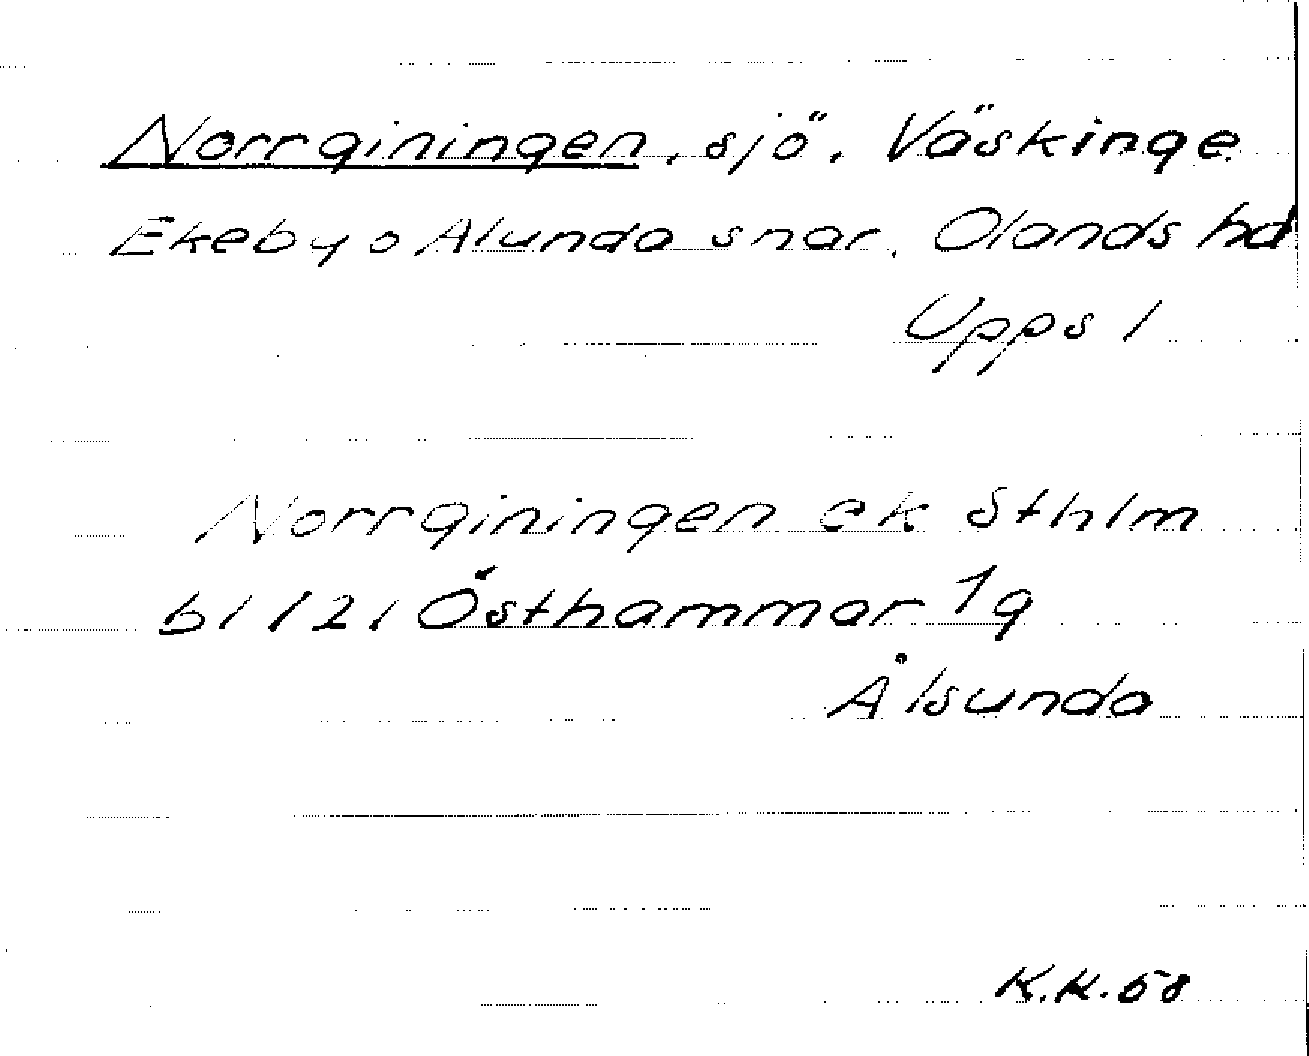 Norrginingen, sjö, Väskinge
Ekeby o Alunda snar, Olands hd
Upps l
Norrginingen ek Sthlm
bl 121 Östhammar 19
Ålsunda
K.K. 58